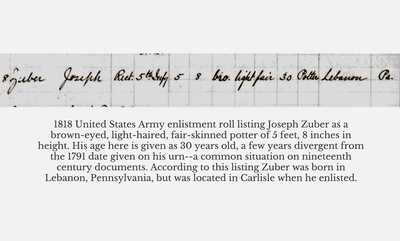 8 Zuber Joseph Rect. 5th Infy 5 8 bro. light fair 30 Potter Lebanon Pa.
1818 United States Army enlistment roll listing Joseph Zuber as a
brown-eyed, light-haired, fair-skinned potter of 5 feet, 8 inches in
height. His age here is given as 30 years old, a few years divergent from
the 1791 date given on his urn--a common situation on nineteenth
century documents. According to this listing Zuber was born in
Lebanon, Pennsylvania, but was located in Carlisle when he enlisted.